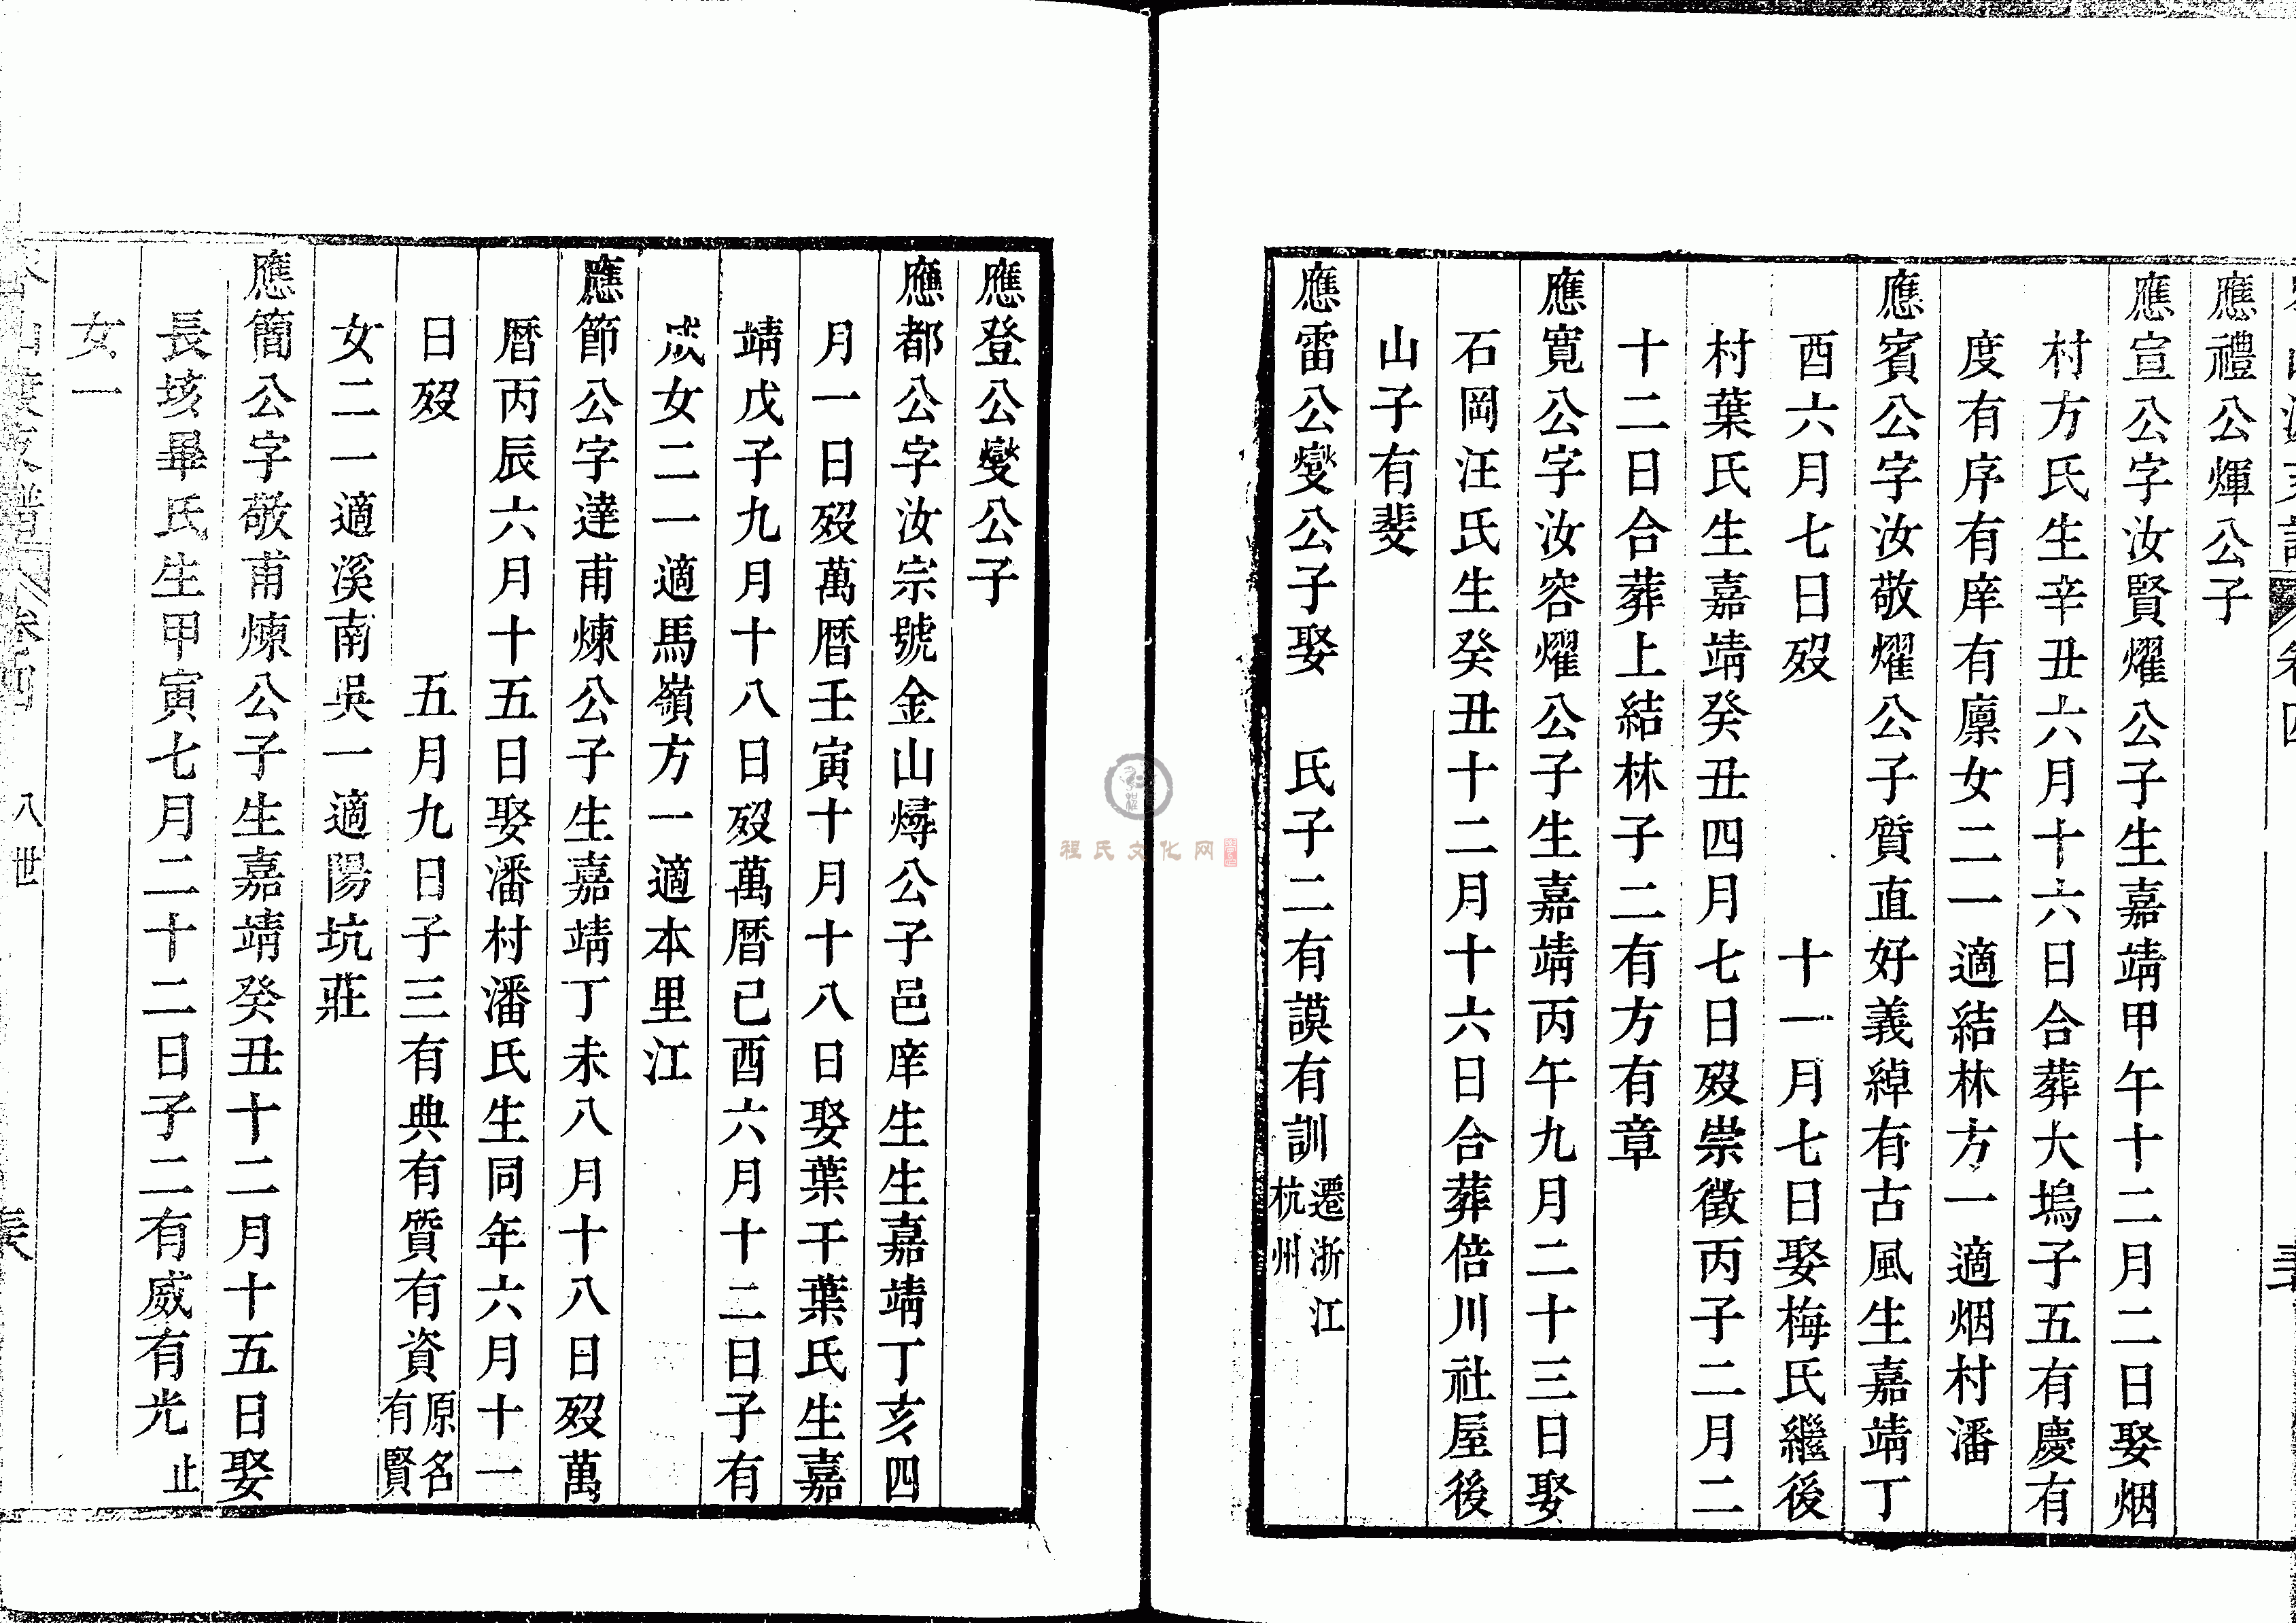 應禮公煇公子
應宣公字汝賢燿公子生嘉靖甲午十二月二日娶烟
村方氏生辛丑六月十六日合葬大塢子五有慶有
度有序有庠有廩女二一適結林方一適烟村潘
應賓公字汝敬燿公子質直好義綽有古風生嘉靖丁
酉六月七日歿 十一月七日娶梅氏繼後
村葉氏生嘉靖癸丑四月七日歿崇徵丙子二月二
十二日合葬上結林子二有方有章
應寛公字汝容燿公子生嘉靖丙午九月二十三日娶
石岡汪氏生癸丑十二月十六日合葬倍川社屋後
山子有斐
應雷公燮公子娶 氏子二有謨有訓遷浙江杭州
應登公燮公子
應都公字汝宗號金山燖公子邑庠生生嘉靖丁亥四
月一日歿萬暦壬寅十月十八日娶葉干葉氏生嘉
靖戊子九月十八日歿萬暦己酉六月十二日子有
成女二一適馬嶺方一適本里江
應節公字達甫煉公子生嘉靖丁未八月十八日歿萬
暦丙辰六月十五日娶潘村潘氏生同年六月十一
日歿 五月九日子三有典有質有資原名有賢
女二一適溪南吳一適陽坑莊
應簡公字敬甫煉公子生嘉靖癸丑十二月十五日娶
長垓畢氏生甲寅七月二十二日子二有威有光止
女一
卷四 八世
程氏文化网